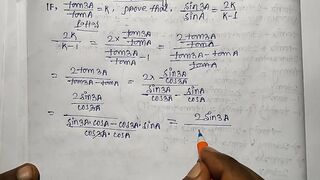 IF, tan3A/tanA = k, prove that, sin3A/sinA = 2k/k-1
2k/k-1 = 2× tan3A/tanA / tan3A/tanA -1 = 2tan3A/tanA / tan3A-tanA/tanA
= 2tan3A/tan3A-tanA = 2× sin3A/cos3A / sin3A/cos3A - sinA/cosA
= 2sin3A/cos3A / sin3A·cosA-cos3A·sinA/cos3A·cosA = 2sin3A